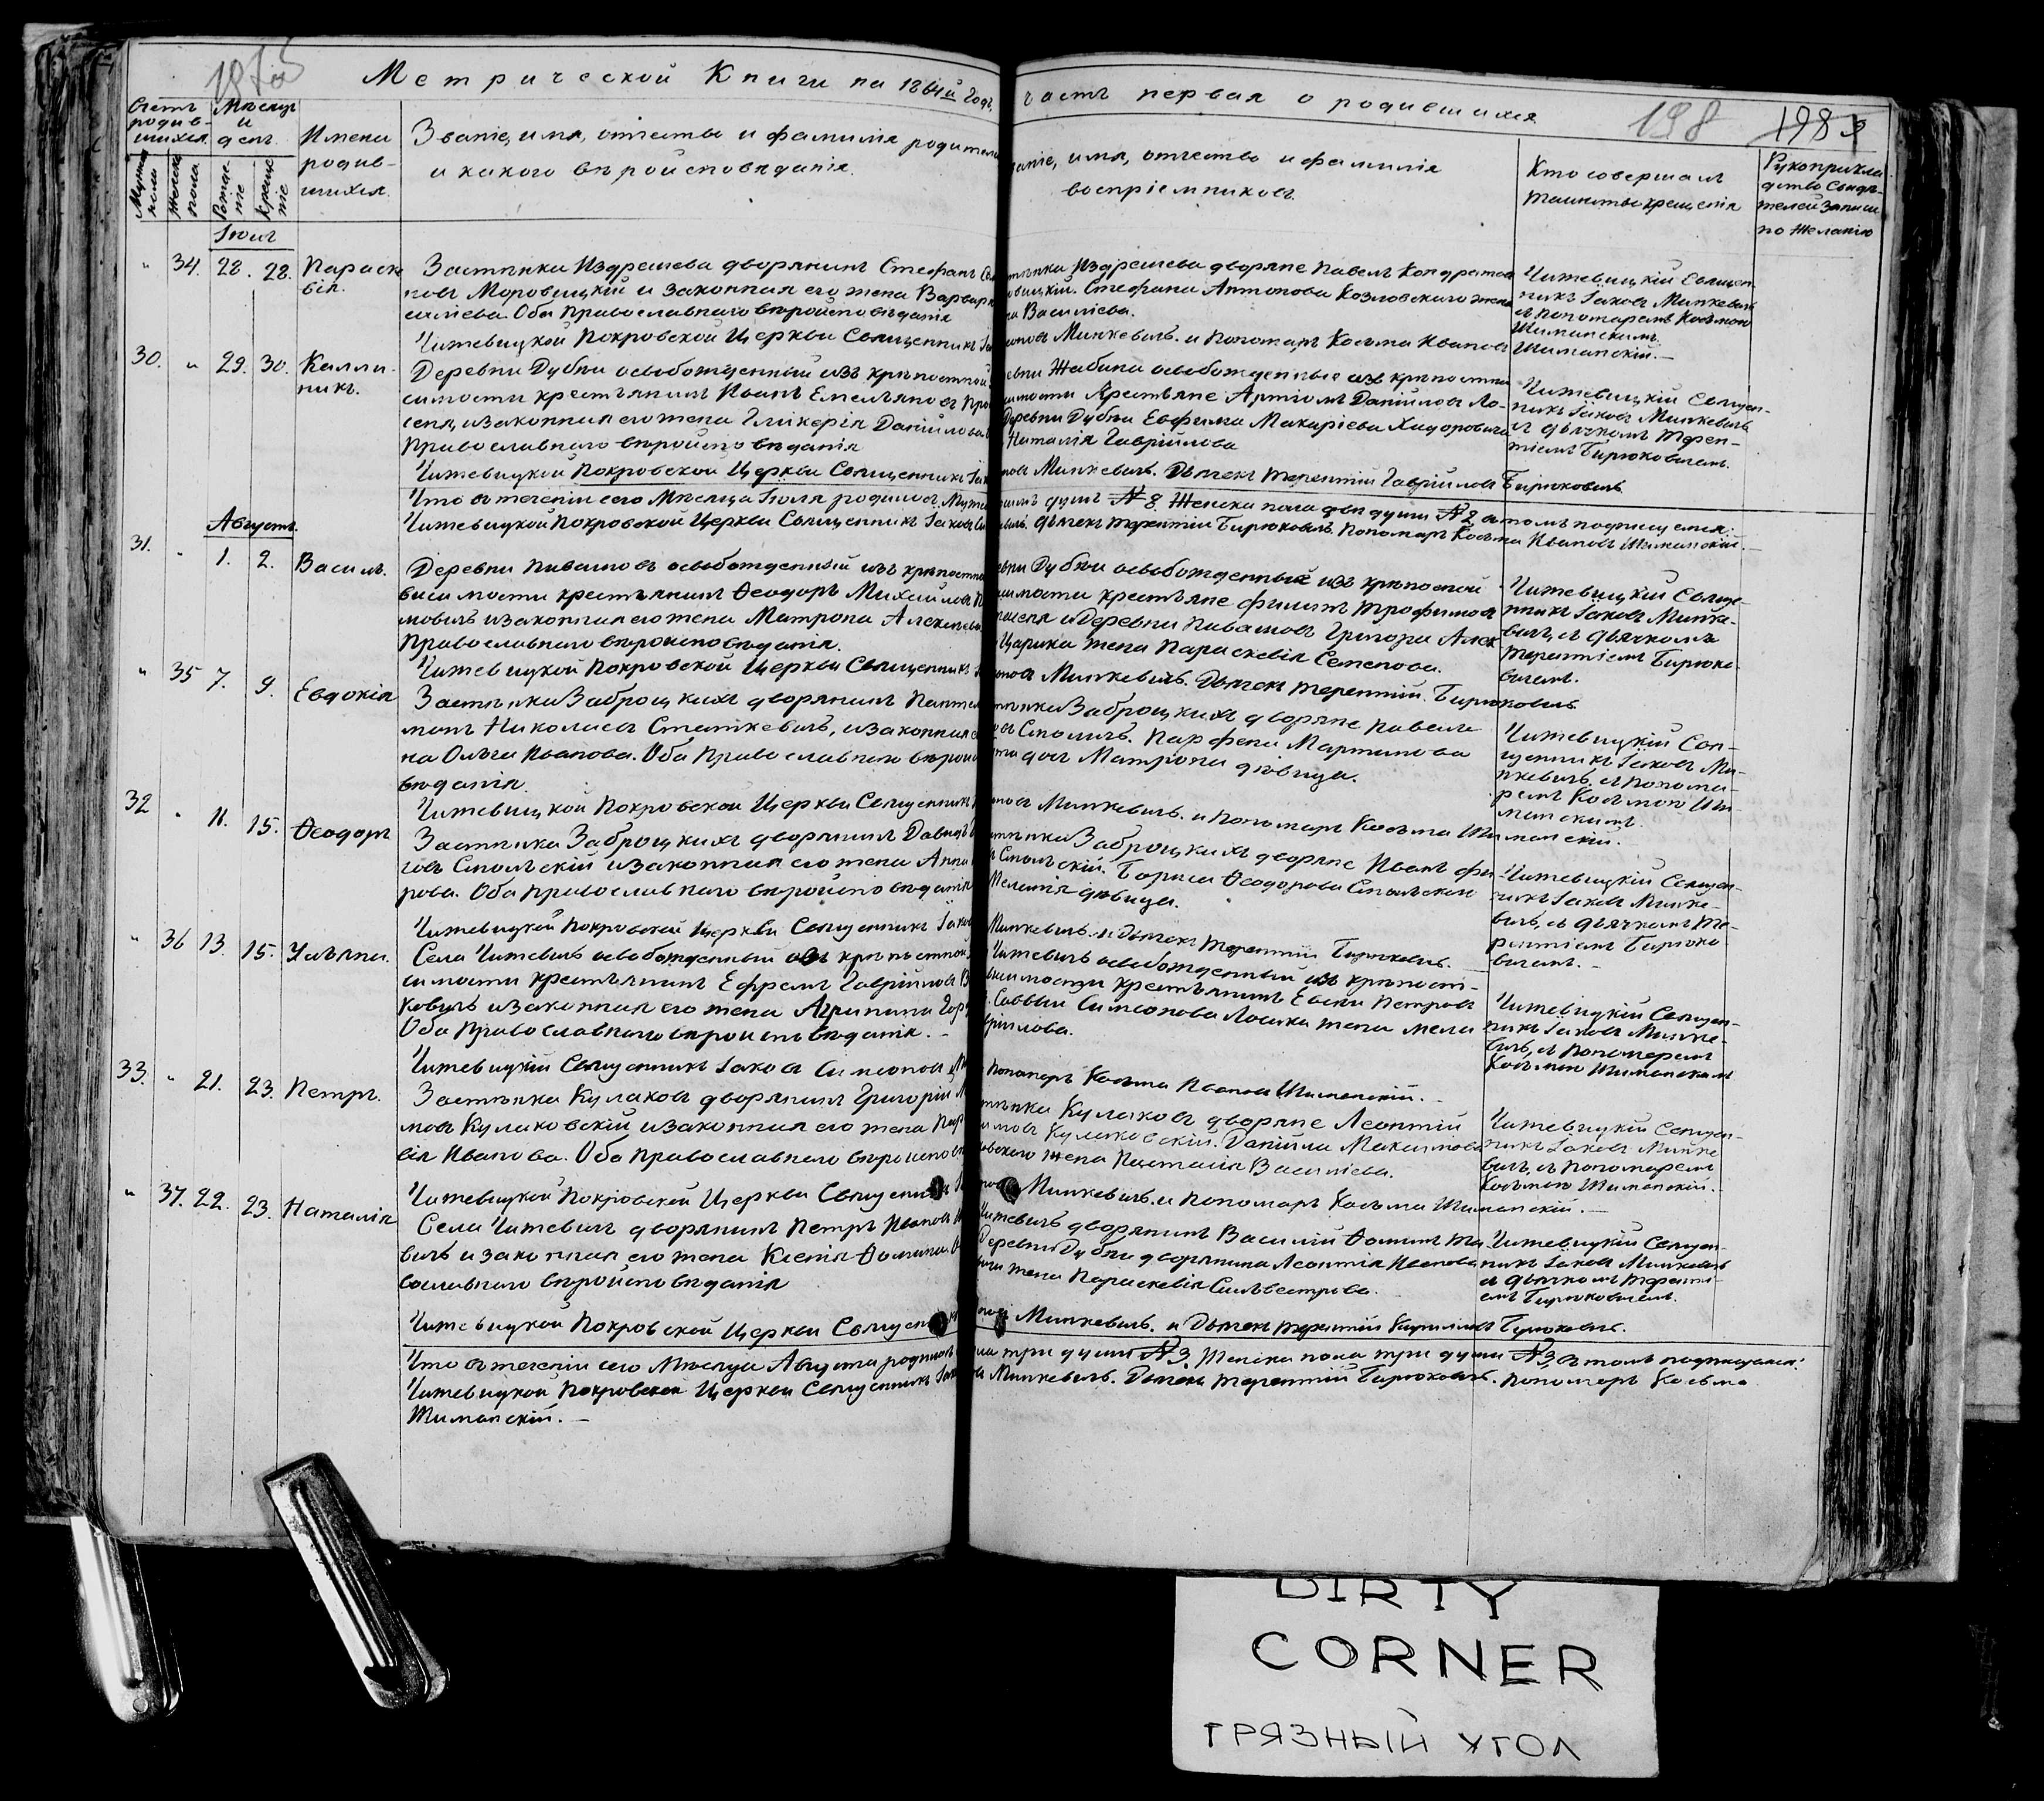 Метрической Книги на 1864й годъ.
часть первая о родившихся
198
198
Счетъ родив-шихся.
Мѣсяцъ и день.
Мужеска пола
Женска пола
Рожде-ніе
Креще-ніе
Имена
родив-
шихся.
Званіе, имя, отчество и фамилія родителей
и какого вѣроисповѣданія.
имя, отчество и фамилія
воспріемниковъ.
Кто совершалъ
таинство крещенія
Рукоприкла-
дство свидѣ-
телей записи
по желанію
Іюль
34. 28. 28. Параске
вія.
Застѣнка Издрешева дворянинъ Стефанъ
новъ Моровицкій и законная его жена Варвара
силіева. Оба Православнаго вѣроисповѣданія
Издрешева дворяне Павелъ Кондратовъ
Стефана Антонова Козловскаго жена
Василіева.
Читевицкій Священ-
никъ Іаковъ Минкевичъ
съ пономаремъ Косьмою
Шиманскимъ.
Читевицкой Покровской Церкви Священникъ
Минкевичъ. и Пономарь Косьма Ивановъ Шиманскій.—
30. " 29. 30. Калли-
никъ.
Деревни Дубни освобожденный изъ крѣпостной
симости крестьянинъ Иванъ Емельяновъ
сеня, и законная его жена Гликерія Даніилова
Православнаго вѣроисповѣданія
Жабина освобожденные изъ крѣпостной
Крестьяне Артіомъ Даніиловъ Ло-
Деревни Дубни Евфима Макаріева Хидоровича
Наталія Гавріилова
Читевицкій Священ-
никъ Іаковъ Минкевичъ
съ дьячкомъ Терен-
тіемъ Бирюковичемъ.
Читевицкой Покровской Церкви Священникъ
Минкевичъ. Дьячекъ Терентій Гавріиловъ Бирюковичъ.
Что въ теченіи сего Мѣсяца Іюля родилось Муже
душъ № 8 Женска пола двѣ души № 2 въ томъ подписуемся:
Читевицкой Покровской Церкви Священникъ Іаковъ
Дьячекъ Терентій Бирюковичъ. Пономарь Косьма Ивановъ Шиманскій.—
Августъ.
31. " 1. 2. Василь.
Деревни Пивашовъ освобожденный изъ крѣпостной
висимости крестьянинъ Ѳеодоръ Михайловъ
мовичъ и законная его жена Матрона Алексѣева
Православнаго вѣроисповѣданія.
Дубни освобожденный изъ крѣпостной
крестьяне Филипъ Трофимовъ
и Деревни Пивашовъ Григорія
Царика жена Параскевія Семенова.
Читевицкій Священ-
никъ Іаковъ Минке-
вичъ, съ дьячкомъ
Терентіемъ Бирюко-
вичемъ.
Читевицкой Покровской Церкви Священникъ
Минкевичъ. Дьячекъ Терентій Бирюковичъ
" 35 7. 9. Евдокія
Застѣнка Заброцкихъ дворянинъ
монъ Николаевъ Статкевичъ, и законная
на Ольга Иванова. Оба Православнаго вѣроиспо
вѣданія.
Заброцкихъ дворяне Павелъ
Парфена Мартинова
Матрона дѣвица.
Читевицкій Свя-
щенникъ Іаковъ Ми-
нкевичъ, съ понома-
ремъ Косьмою Ши-
манскимъ.
Читевицкой Покровской Церкви Священникъ
Минкевичъ. и Пономарь Косьма Шиманскій.
32 " 11. 15. Ѳеодоръ
Застѣнка Заброцкихъ дворянинъ Давидъ
Смольскій и законная его жена Анна
рова. Оба Православнаго вѣроисповѣданія
Заброцкихъ дворяне Иванъ
Смольскій. Бориса Ѳеодорова Смольскаго
дѣвица.
Читевицкій Священ-
никъ Іаковъ Минке-
вичъ, съ дьячкомъ Те-
рентіемъ Бирюко-
вичемъ.—
Читевицкой Покровской Церкви Священникъ Іаковъ
Минкевичъ. и Дьячекъ Терентій Бирюковичъ.
" 36 13. 15. Ульяна.
Села Читевичъ освобожденный изъ крѣпостной
симости крестьянинъ Ефремъ Гавріиловъ
ковичъ и законная его жена Агрипина
Оба Православнаго вѣроисповѣданія.—
Читевичъ освобожденный изъ крѣпост-
крестьянинъ Евсей Петровъ
Саввы Симеонова Лосика жена
Читевицкій Священ-
никъ Іаковъ Минке-
вичъ, съ Пономаремъ
Косьмою Шиманскимъ
Читевицкій Священникъ Іаковъ Симеоновъ
Пономарь Косьма Ивановъ Шиманскій.—
33. " 21. 23. Петръ.
Застѣнка Кулаковъ дворянинъ Григорій
мовъ Кулаковскій и законная его жена
вія Иванова. Оба Православнаго вѣроиспо
Кулаковъ дворяне Леонтій
Кулаковскій. Даніила Максимова
жена Василіева.
Читевицкій Священ-
никъ Іаковъ Минке
вичъ, съ пономаремъ
Косьмою Шиманскій.
Читевицкой Покровской Церкви Священникъ
Минкевичъ. и Пономарь Косьма Шиманскій.—
" 37. 22. 23. Наталія
Села Читевичъ дворянинъ Петръ Ивановъ
вичъ и законная его жена Ксенія Ѳомина.
вославнаго вѣроисповѣданія
Читевичъ дворянинъ Василій Ѳоминъ
Деревни Дубни дворянина Леонтія Иванова
жена Параскевія Сильвестрова.
Читевицкій Священ-
никъ Іаковъ Минкевичъ
съ дьячкомъ Терентi-
емъ Бирюковичемъ.
Читевицкой Покровской Церкви Священ
Минкевичъ. и Дьячекъ Терентій Бирюковичъ.
Что въ теченіи сего Мѣсяца Августа родилось
три души № 3, Женска пола три души № 3, въ томъ подписуемся:
Читевицкой Покровской Церкви Священникъ
Минкевичъ. Дьячекъ Терентій Бирюковичъ. Пономарь Косьма
Шиманскій.—
DIRTY
CORNER
ГРЯЗНЫЙ УГОЛ